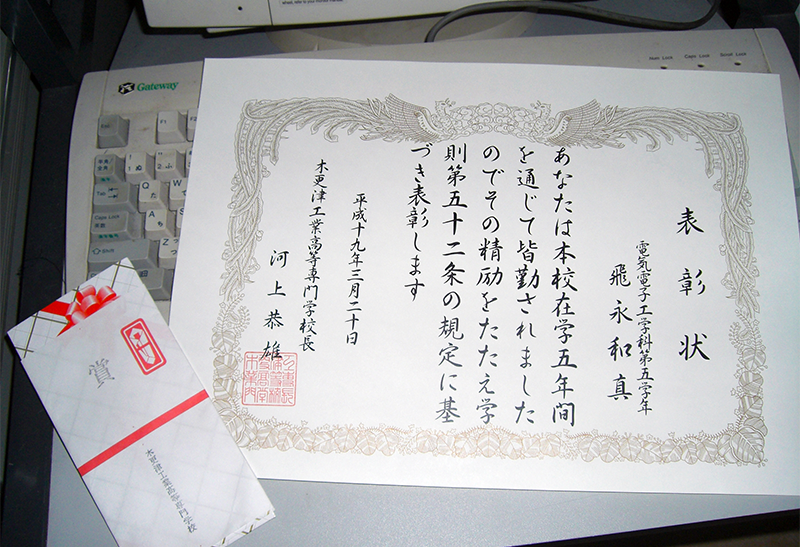 表彰状
電気電子工学科第五学年
飛永和真
あなたは本校在学五年間
を通じて皆勤されました
のでその精励をたたえ学
則第五十二条の規定に基
づき表彰します
平成十九年三月二十日
木更津工業高等専門学校長
河上恭雄
賞
木更津工業高等専門学校
Gateway
Num Lock
Caps Lock
Scroll Lock
Esc
F1
F2
Tab
Q た
W て
Caps Lock
A ち
S と
Shift
Z つ